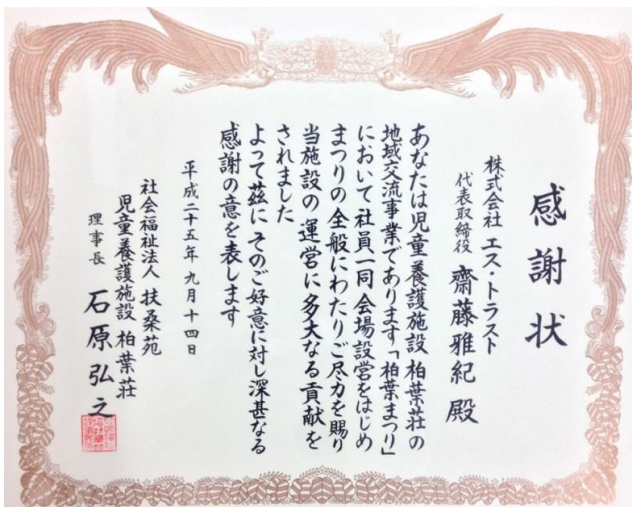 感謝状
株式会社 エス・トラスト
代表取締役 齋藤雅紀 殿
あなたは児童養護施設 柏葉荘の
地域交流事業であります「柏葉まつり」
において社員一同会場設営をはじめ
まつりの全般にわたりご尽力を賜り
当施設の運営に多大なる貢献を
されました
よって茲に そのご好意に対し深甚なる
感謝の意を表します
平成二十五年九月十四日
社会福祉法人 扶桑苑
児童養護施設 柏葉荘
理事長 石原弘之